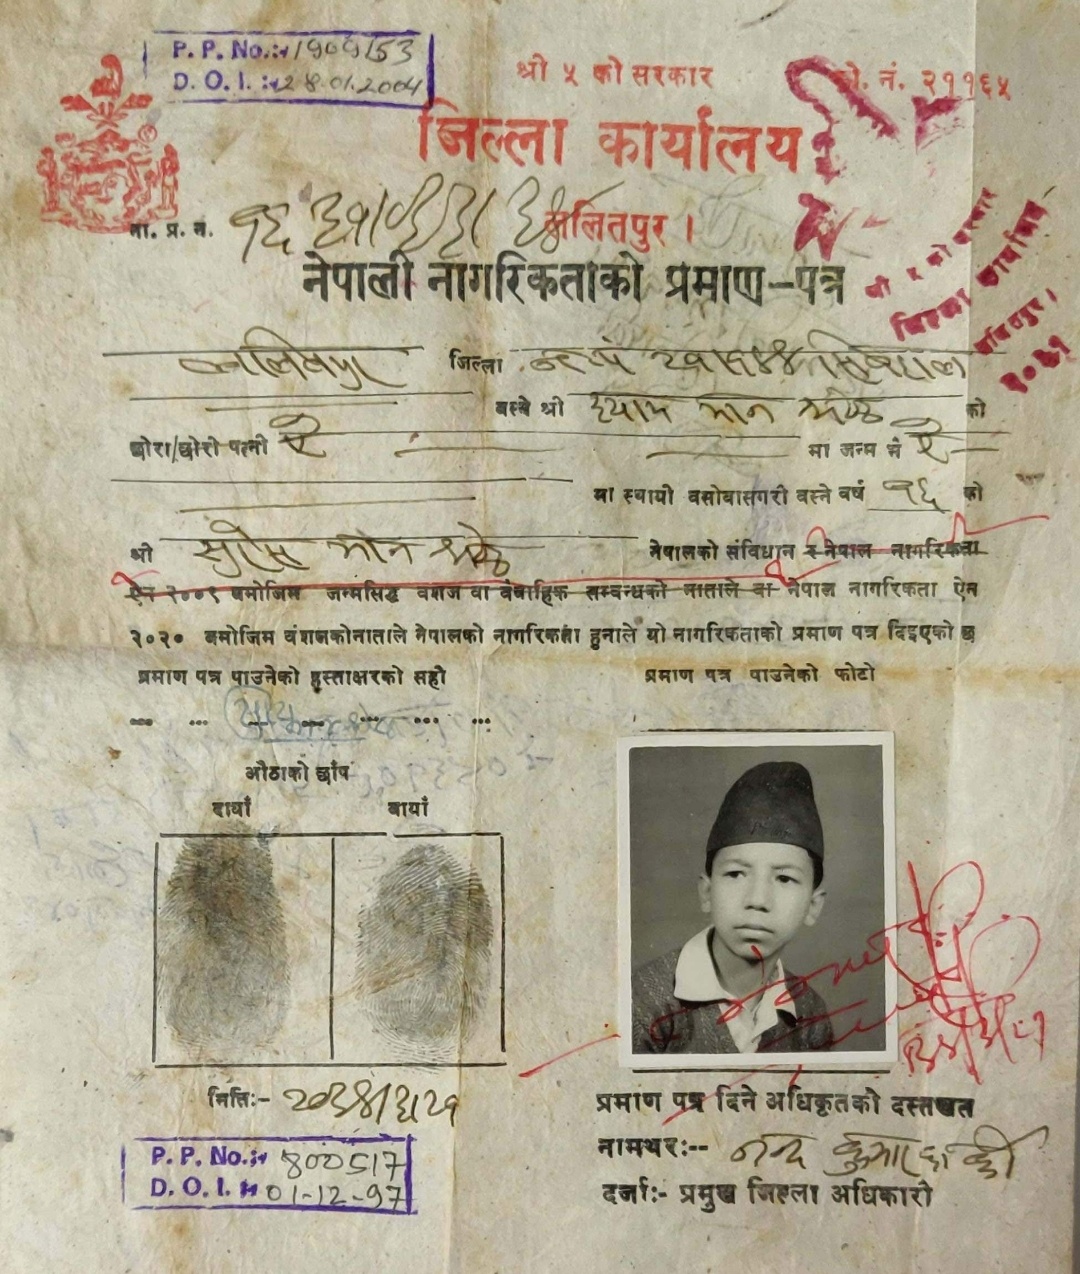 P. P. No.:- 1909153
D. O. I. :- 28.01.2004
श्री ५ को सरकार
को. नं. २११६५
जिल्ला कार्यालय
ललितपुर ।
ना. प्र. नं.
नेपाली नागरिकताको प्रमाण-पत्र
श्री ५ को सरकार
जिल्ला कार्यालय
ललितपुर ।
ललितपुर जिल्ला
बस्ने श्री श्याम मान श्रेष्ठ को
छोरा/छोरी पत्नी ऐ मा जन्म भै ऐ
मा स्थायी बसोबासगरी बस्ने वर्ष १६ को
श्री मान श्रेष्ठ नेपालको संविधान र नेपाल नागरिकता
ऐन २००९ बमोजिम जन्मसिद्ध वंशज वा वैवाहिक सम्बन्धको नाताले वा नेपाल नागरिकता ऐन
२०२० बमोजिम वंशजकोनाताले नेपालको नागरिकता हुनाले यो नागरिकताको प्रमाण पत्र दिइएको छ
प्रमाण पत्र पाउनेको हस्ताक्षरको सही
प्रमाण पत्र पाउनेको फोटो
औंठाको छाप
दायाँ बायाँ
मिति:- २०३४/३/२१
प्रमाण पत्र दिने अधिकृतको दस्तखत
नामथर:-- नन्द कुमार
दर्जा:- प्रमुख जिल्ला अधिकारी
P. P. No.:- 800517
D. O. I. :- 01-12-97